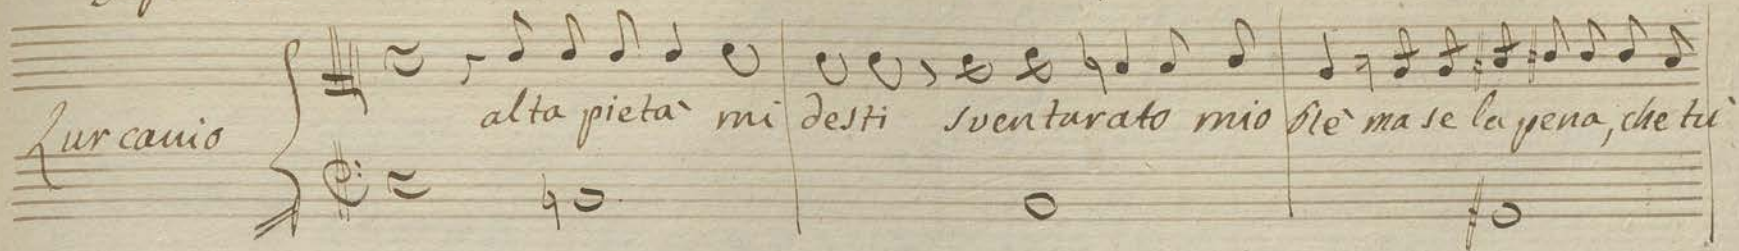 Lurcanio
alta pietà mi desti sventurato mio Rè ma se la pena, che tù